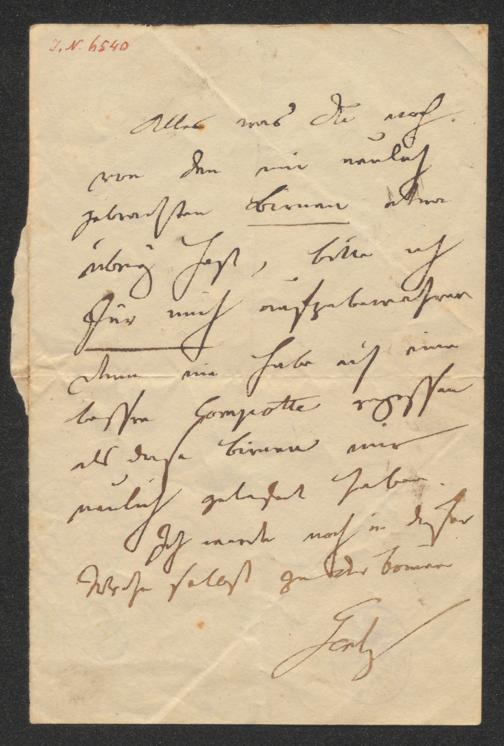 I. N. 6540
Alles was Du noch
von den mir neulich
gebrachten Birnen etwa
übrig hast, bitte ich
für mich aufzubewahren
denn nie habe ich eine
bessre Compotte
als diese birnen mir
neulich haben.
Ich werde noch in dieser
Woche selbst zu dir komen